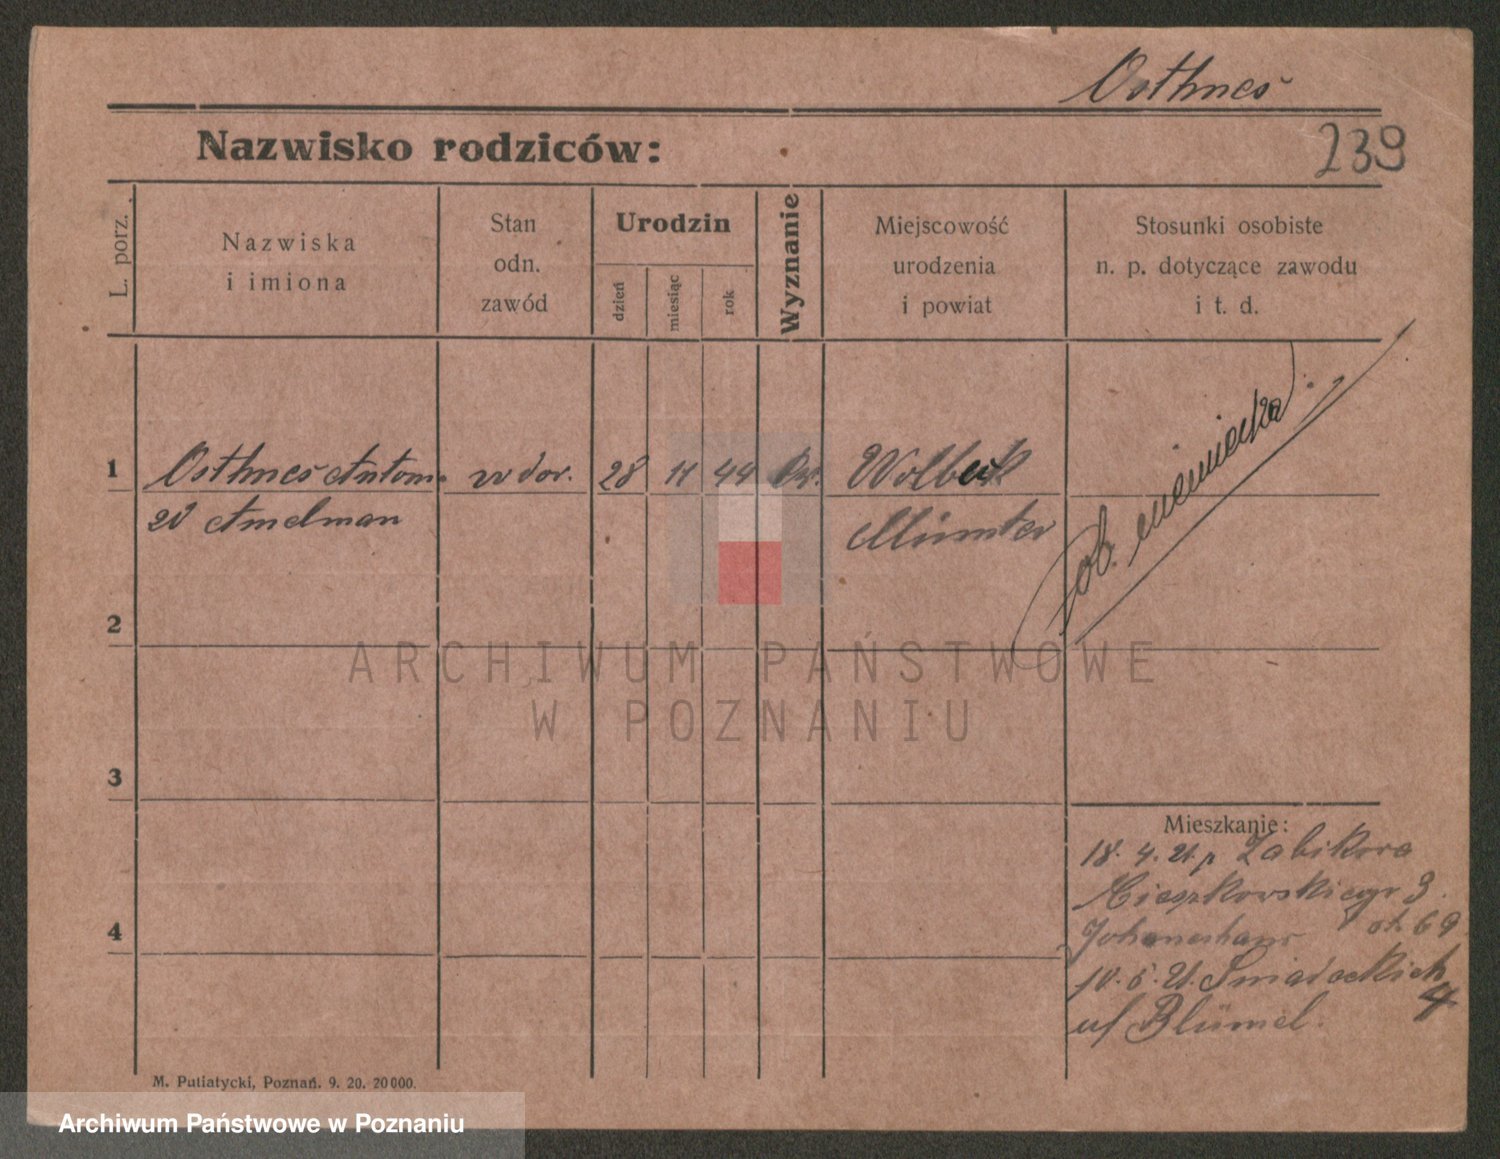 Osthues
Nazwisko rodziców:
239
L. porz.
Nazwiska
i imiona
Stan
odn.
zawód
Urodzin
dzień
miesiąc
rok
Wyznanie
Miejscowość
urodzenia
i powiat
Stosunki osobiste
n. p. dotyczące zawodu
i t. d.
1
Osthues Antom. wdow. 28 11 44 kw. Wolbeck
zd Amelman Münster
ob. niemiecka.
2
3
4
Mieszkanie:
18. 4. 21. p Żabikowa
Cieszkowskiego 3.
69
10. 5. 21. Śniadeckich 4
u/ Blümel.
M. Putiatycki, Poznań. 9. 20. 20000.
ARCHIWUM PAŃSTWOWE
W POZNANIU
Archiwum Państwowe w Poznaniu